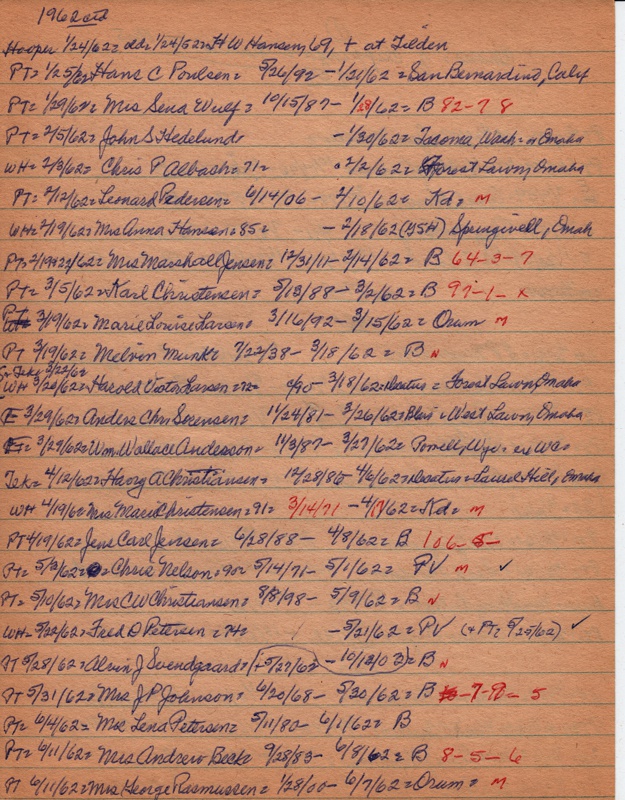 1962 ctd
Hooper 1/24/62= old= 1/24/52= H W Hansen, 69, + at Tilden
PT= 1/25/62= Hans C Poulsen= 5/26/92 - 1/21/62 = San Bernardino, Calif
PT= 1/29/62= Mrs Sena Wulf= 10/15/87 - 1/28/62 = B 82-7 8
PT= 2/5/62= John S Hedelund= - 1/30/62= Tacoma, Wash = Omaha
WH= 2/3/62= Chris P Albach= 71= 2/2/62= Forest Lawn, Omaha
PT= 2/12/62= Leonard Pedersen= 6/14/06 - 2/10/62= Kd= M
WH= 2/19/62= Mrs Anna Hansen= 85= - 2/18/62 Springwell, Omah
PT= 2/19+22/62= Mrs Marshall Jensen= 12/31/11 - 2/14/62= B 64-3-7
PT= 3/5/62= Karl Christensen= 5/13/88 - 3/2/62= B 97-1-x
PT= 3/19/62= Marie Louise Larsen= 3/16/92 - 3/15/62= Orum M
PT 3/19/62= Melvin Munk= 7/22/38 - 3/18/62= B N
Tek= 3/22/62
WH 3/20/62= Harold Victor Larsen= 72= 90 - 3/18/62= = Forest Lawn, Omaha
E= 3/29/62= Anders Chr Sorensen= 11/24/81 - 3/26/62= Blair = West Lawn, Omaha
E= 3/29/62= Wm Wallace Anderson= 11/3/87 - 3/27/62= Powell, Wyo= ex WCo
Tek= 4/12/62= Harry A Christiansen= 12/28/85 - 4/6/62= = Laurel Hill, Omaha
WH 4/19/62= Mrs Marie Christensen= 91= 3/14/71 - 4/17/62= Kd= M
PT 4/19/62= Jens Carl Jensen= 6/28/88 - 4/8/62= B 106-5-
PT= 5/3/62= Chris Nelson= 90= 5/14/71 - 5/1/62= PV M ✓
PT= 5/10/62= Mrs CW Christiansen= 8/8/98 - 5/9/62= B N
WH= 5/22/62= Fred D Petersen= 74= - 5/21/62= PV (+ PT= 5/25/62) ✓
PT 5/28/62= Alvin J Svendgaard= (+5/27/62 - 10/13/02)= B N
PT 5/31/62= Mrs J P Johnson= 6/20/68 - 5/30/62= B -7-9- 5
PT= 6/4/62= Mrs Lena Petersen= 5/11/80 - 6/1/62= B
PT= 6/11/62= Mrs Andrew Beck= 9/28/83 - 6/8/62= B 8-5-6
PT 6/11/62= Mrs George Rasmussen= 1/28/00 - 6/7/62= Orum= M